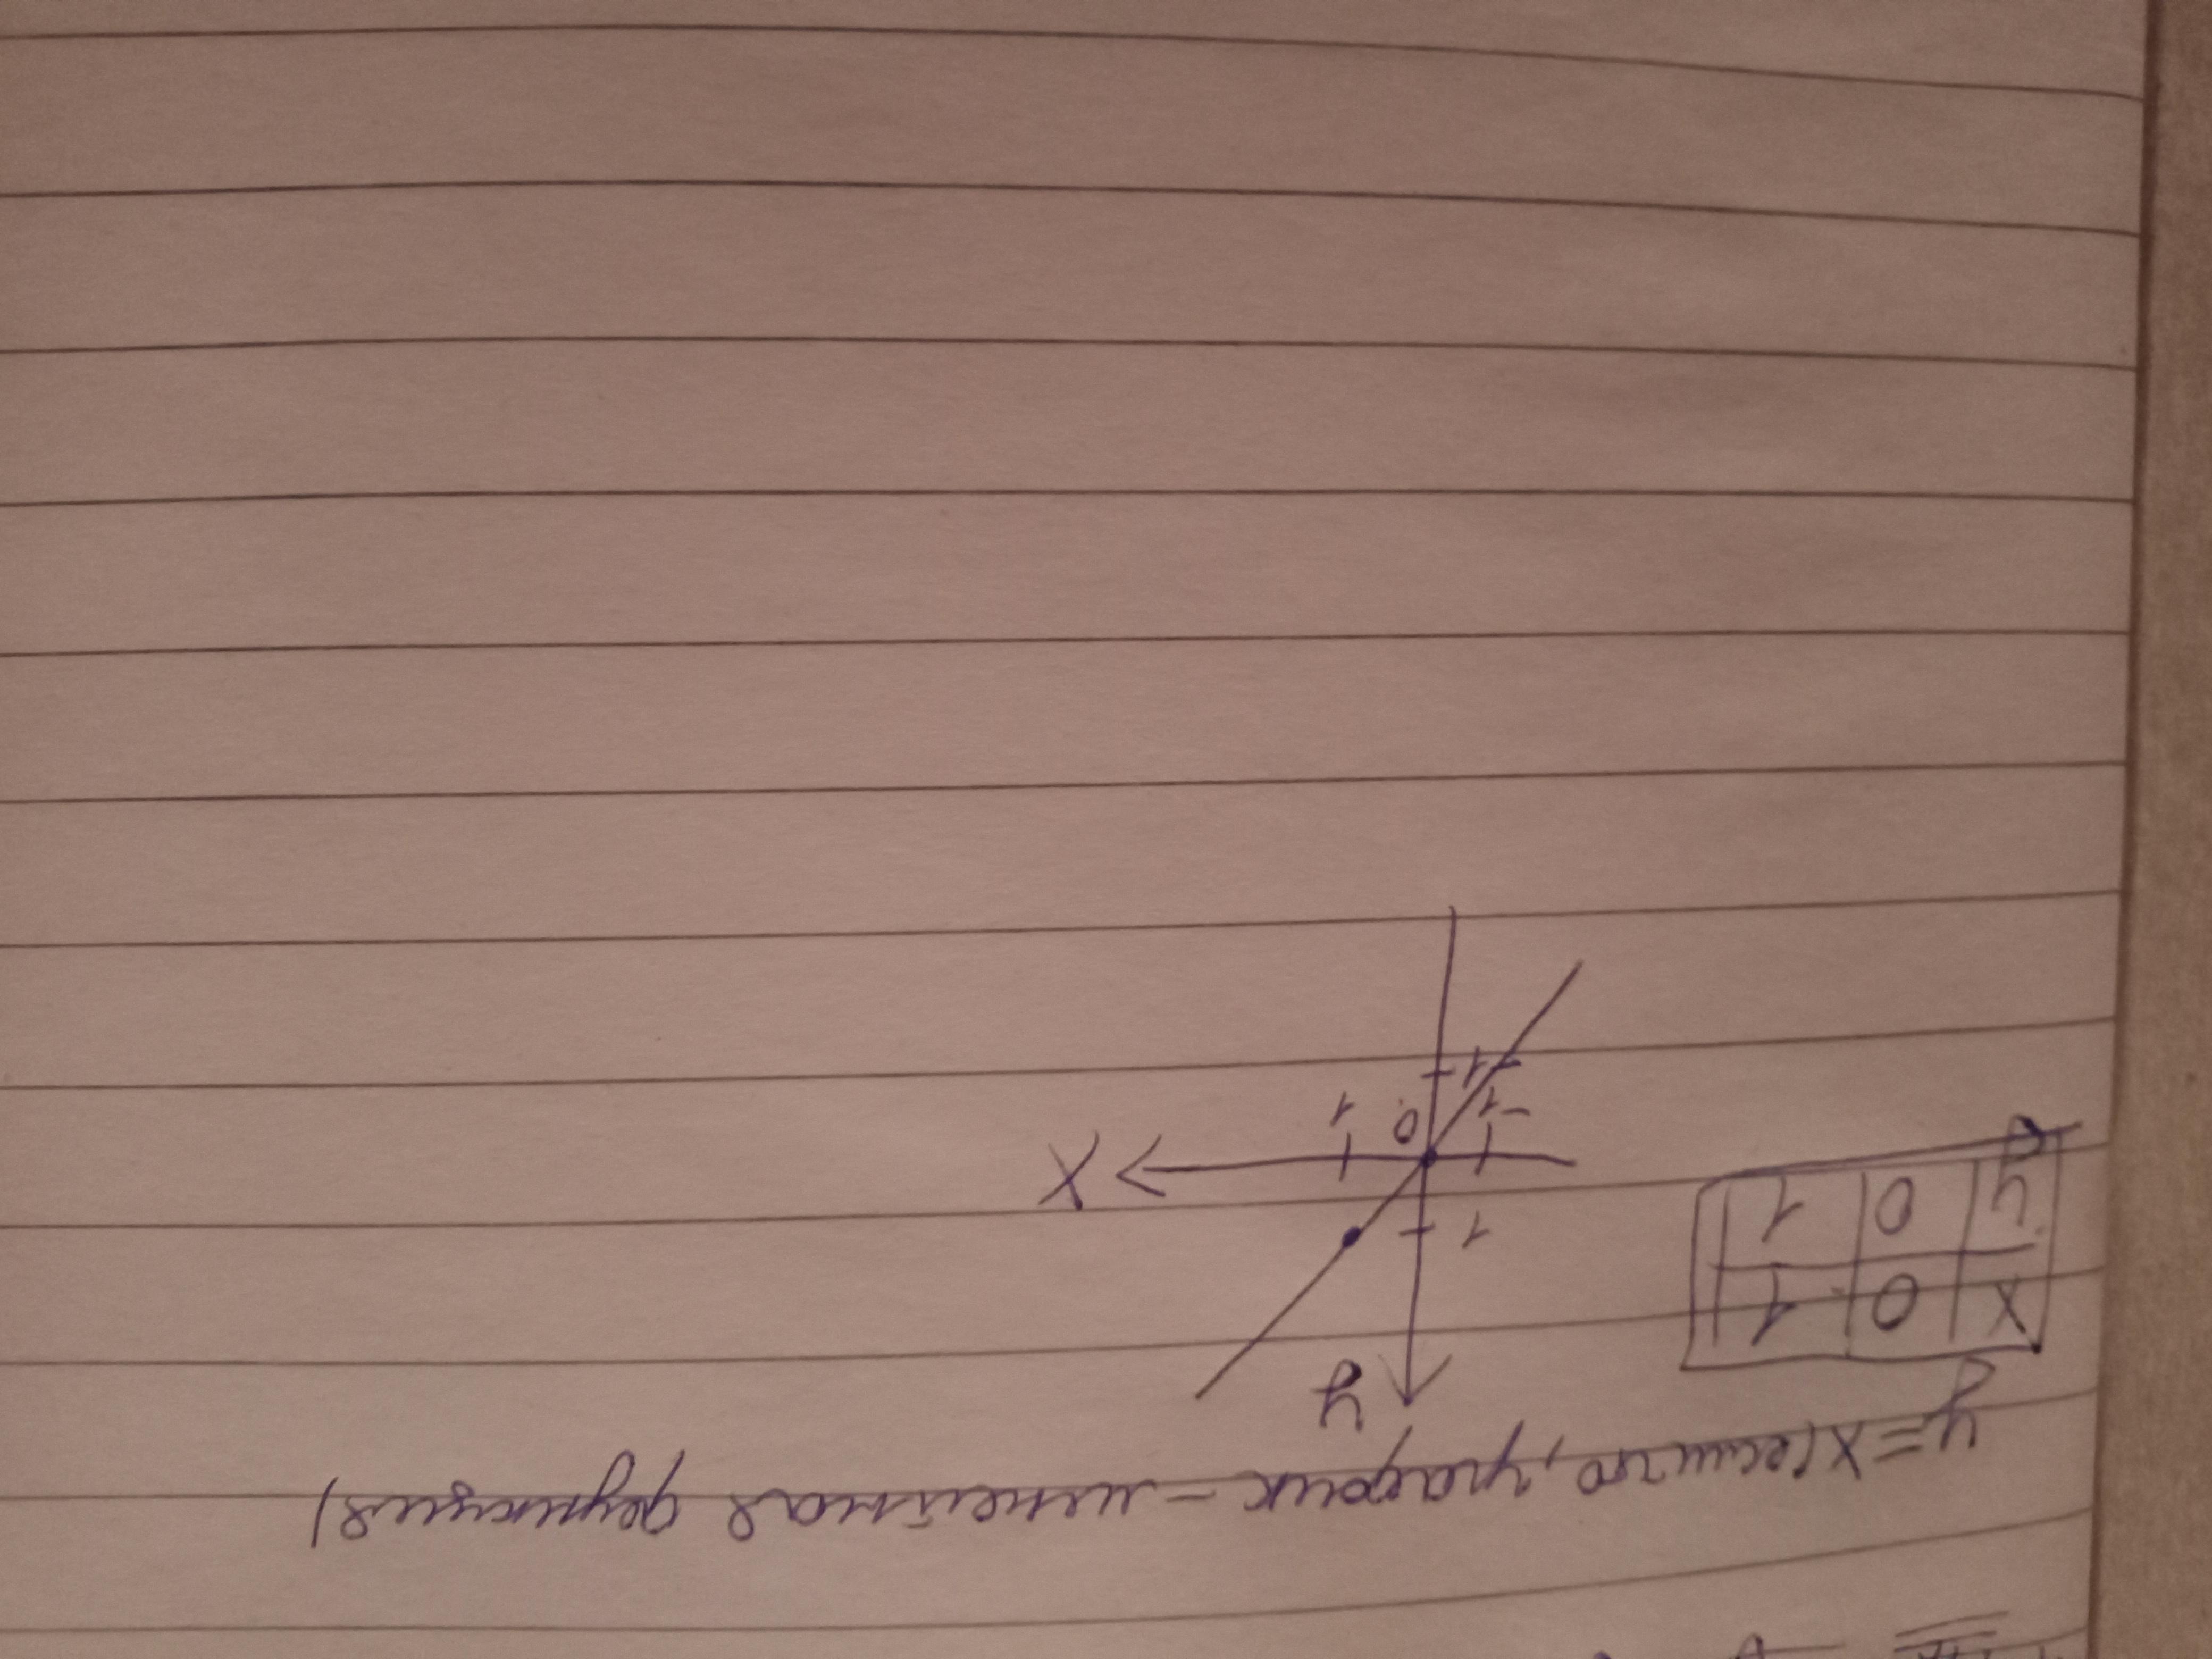 y=x(если что, график - линейная функция)
y
x 0 1
y 0 1
1
x
-1 0 1
-1